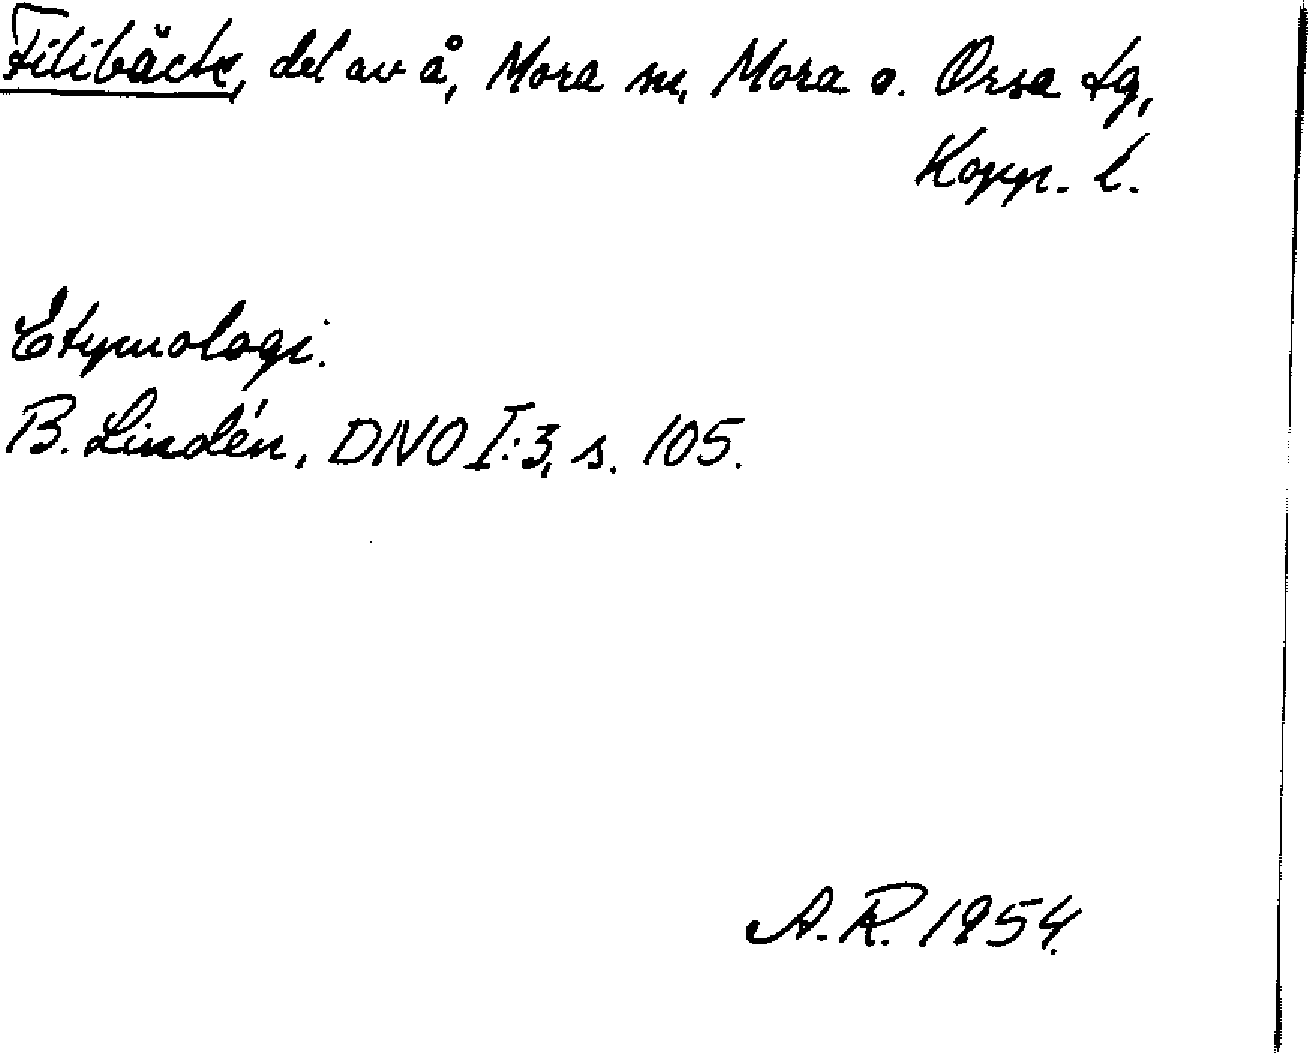 Filibäck, del av å, Mora sn, Mora o. Orsa tg,
Kopp. l.
Etymologi.
B. Lindén, DNO I:3, s. 105.
A. R. 1954.